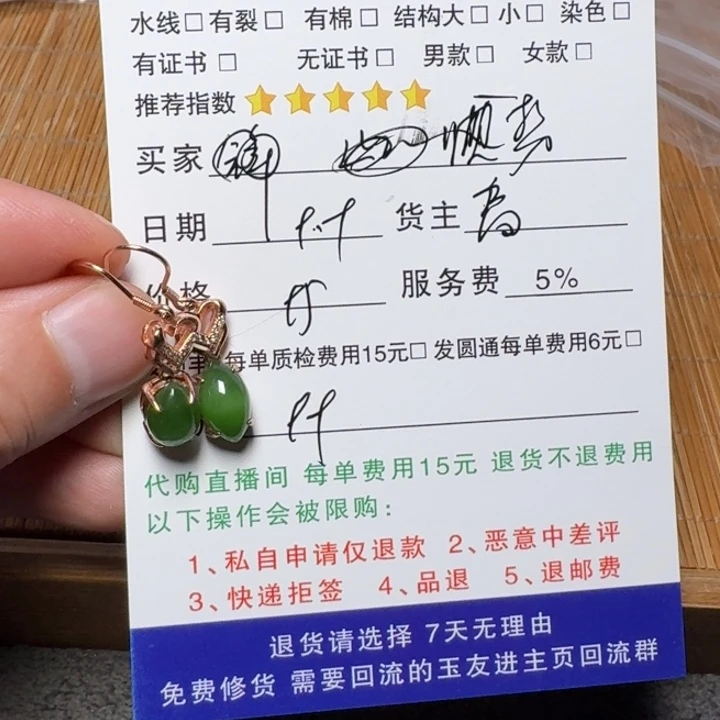 水线□有裂□ 有棉□ 结构大□ 小□ 染色□
有证书□ 无证书□ 男款□ 女款□
推荐指数
买家
日期 货主
价格 服务费 5%
每单质检费用15元□ 发圆通每单费用6元□
代购直播间 每单费用15元 退货不退费用
以下操作会被限购:
1、私自申请仅退款 2、恶意中差评
3、快递拒签 4、品退 5、退邮费
退货请选择 7天无理由
免费修货 需要回流的玉友进主页回流群